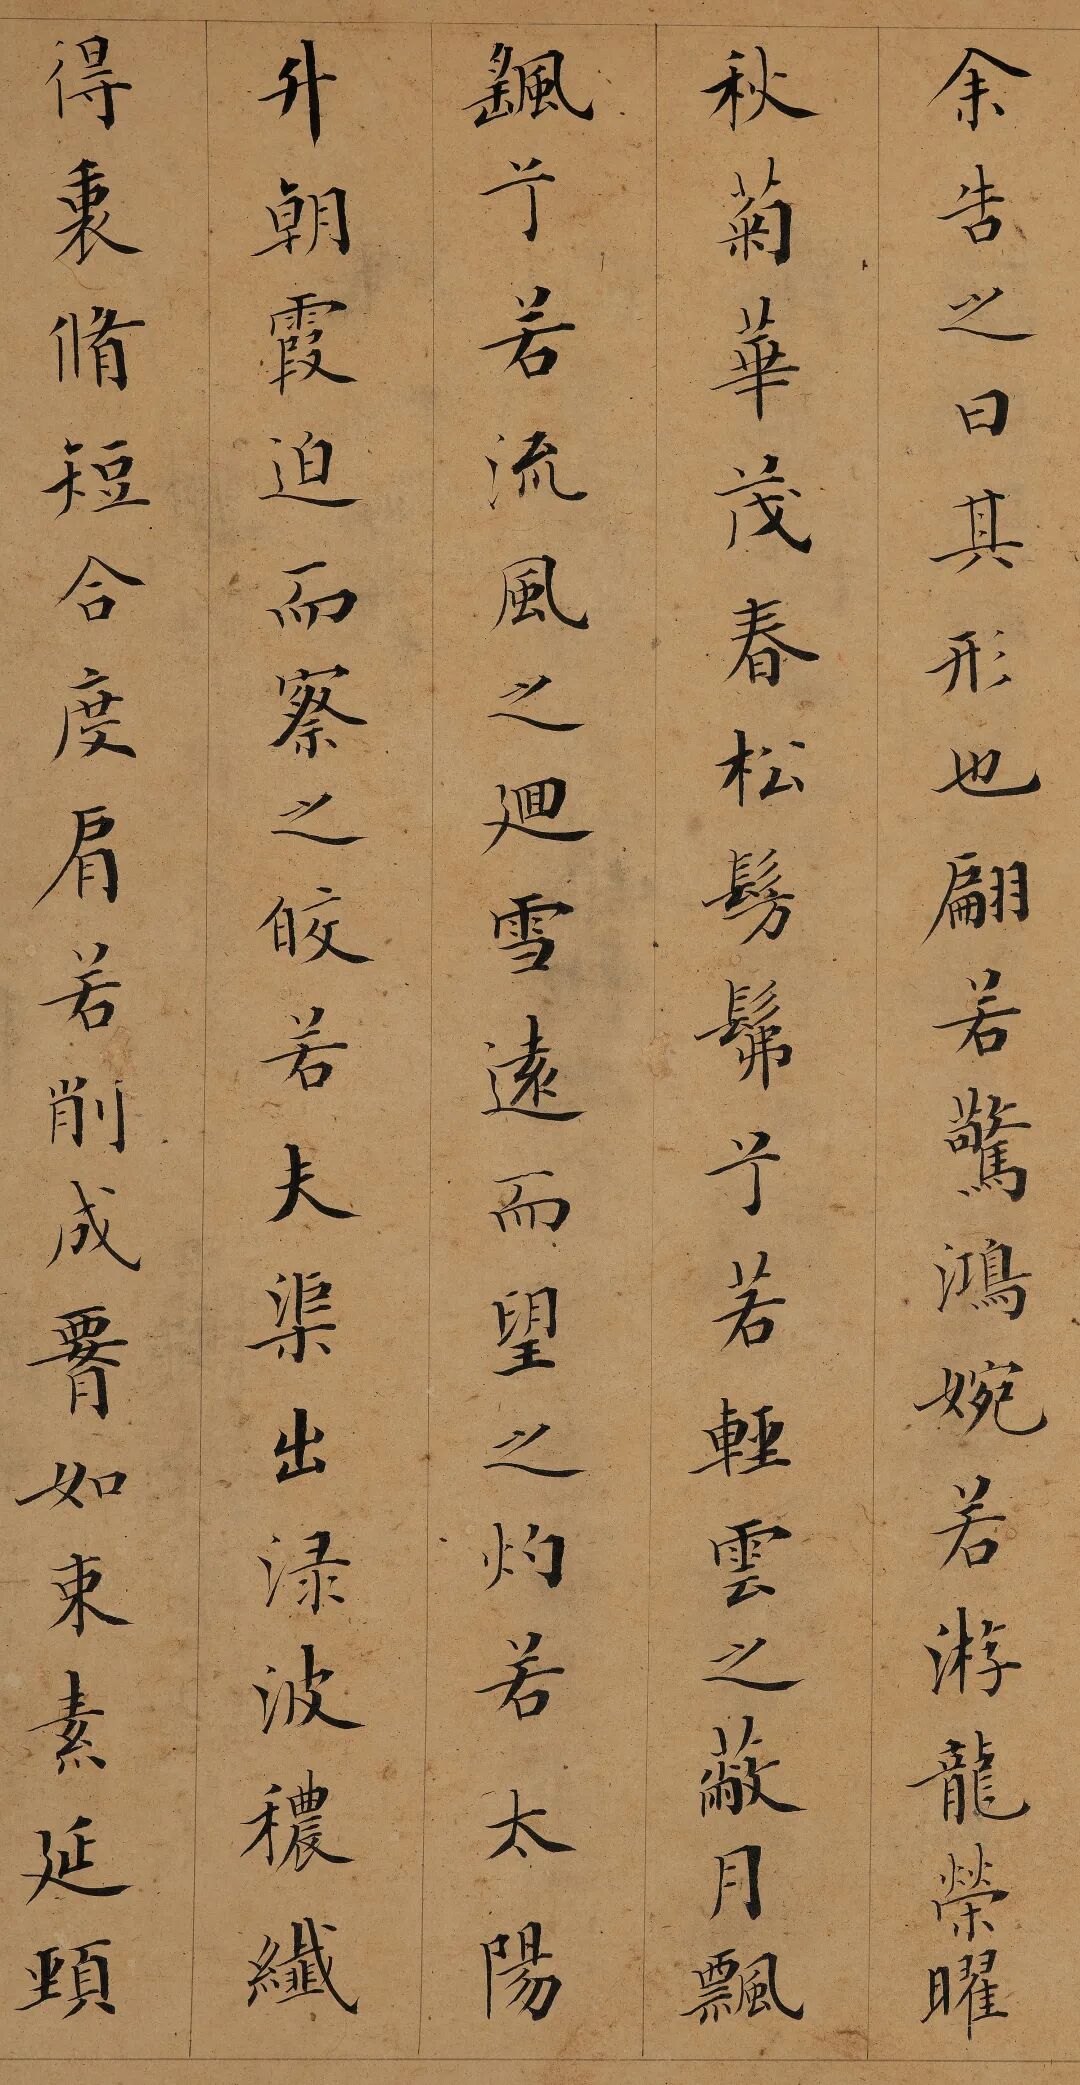 余告之曰其形也翩若驚鴻婉若游龍榮曜
秋菊華茂春松髣髴兮若輕雲之蔽月飄
飖兮若流風之廻雪遠而望之灼若太陽
升朝霞迫而察之皎若夫渠出淥波穠纖
得衷脩短合度肩若削成腰如束素延頸